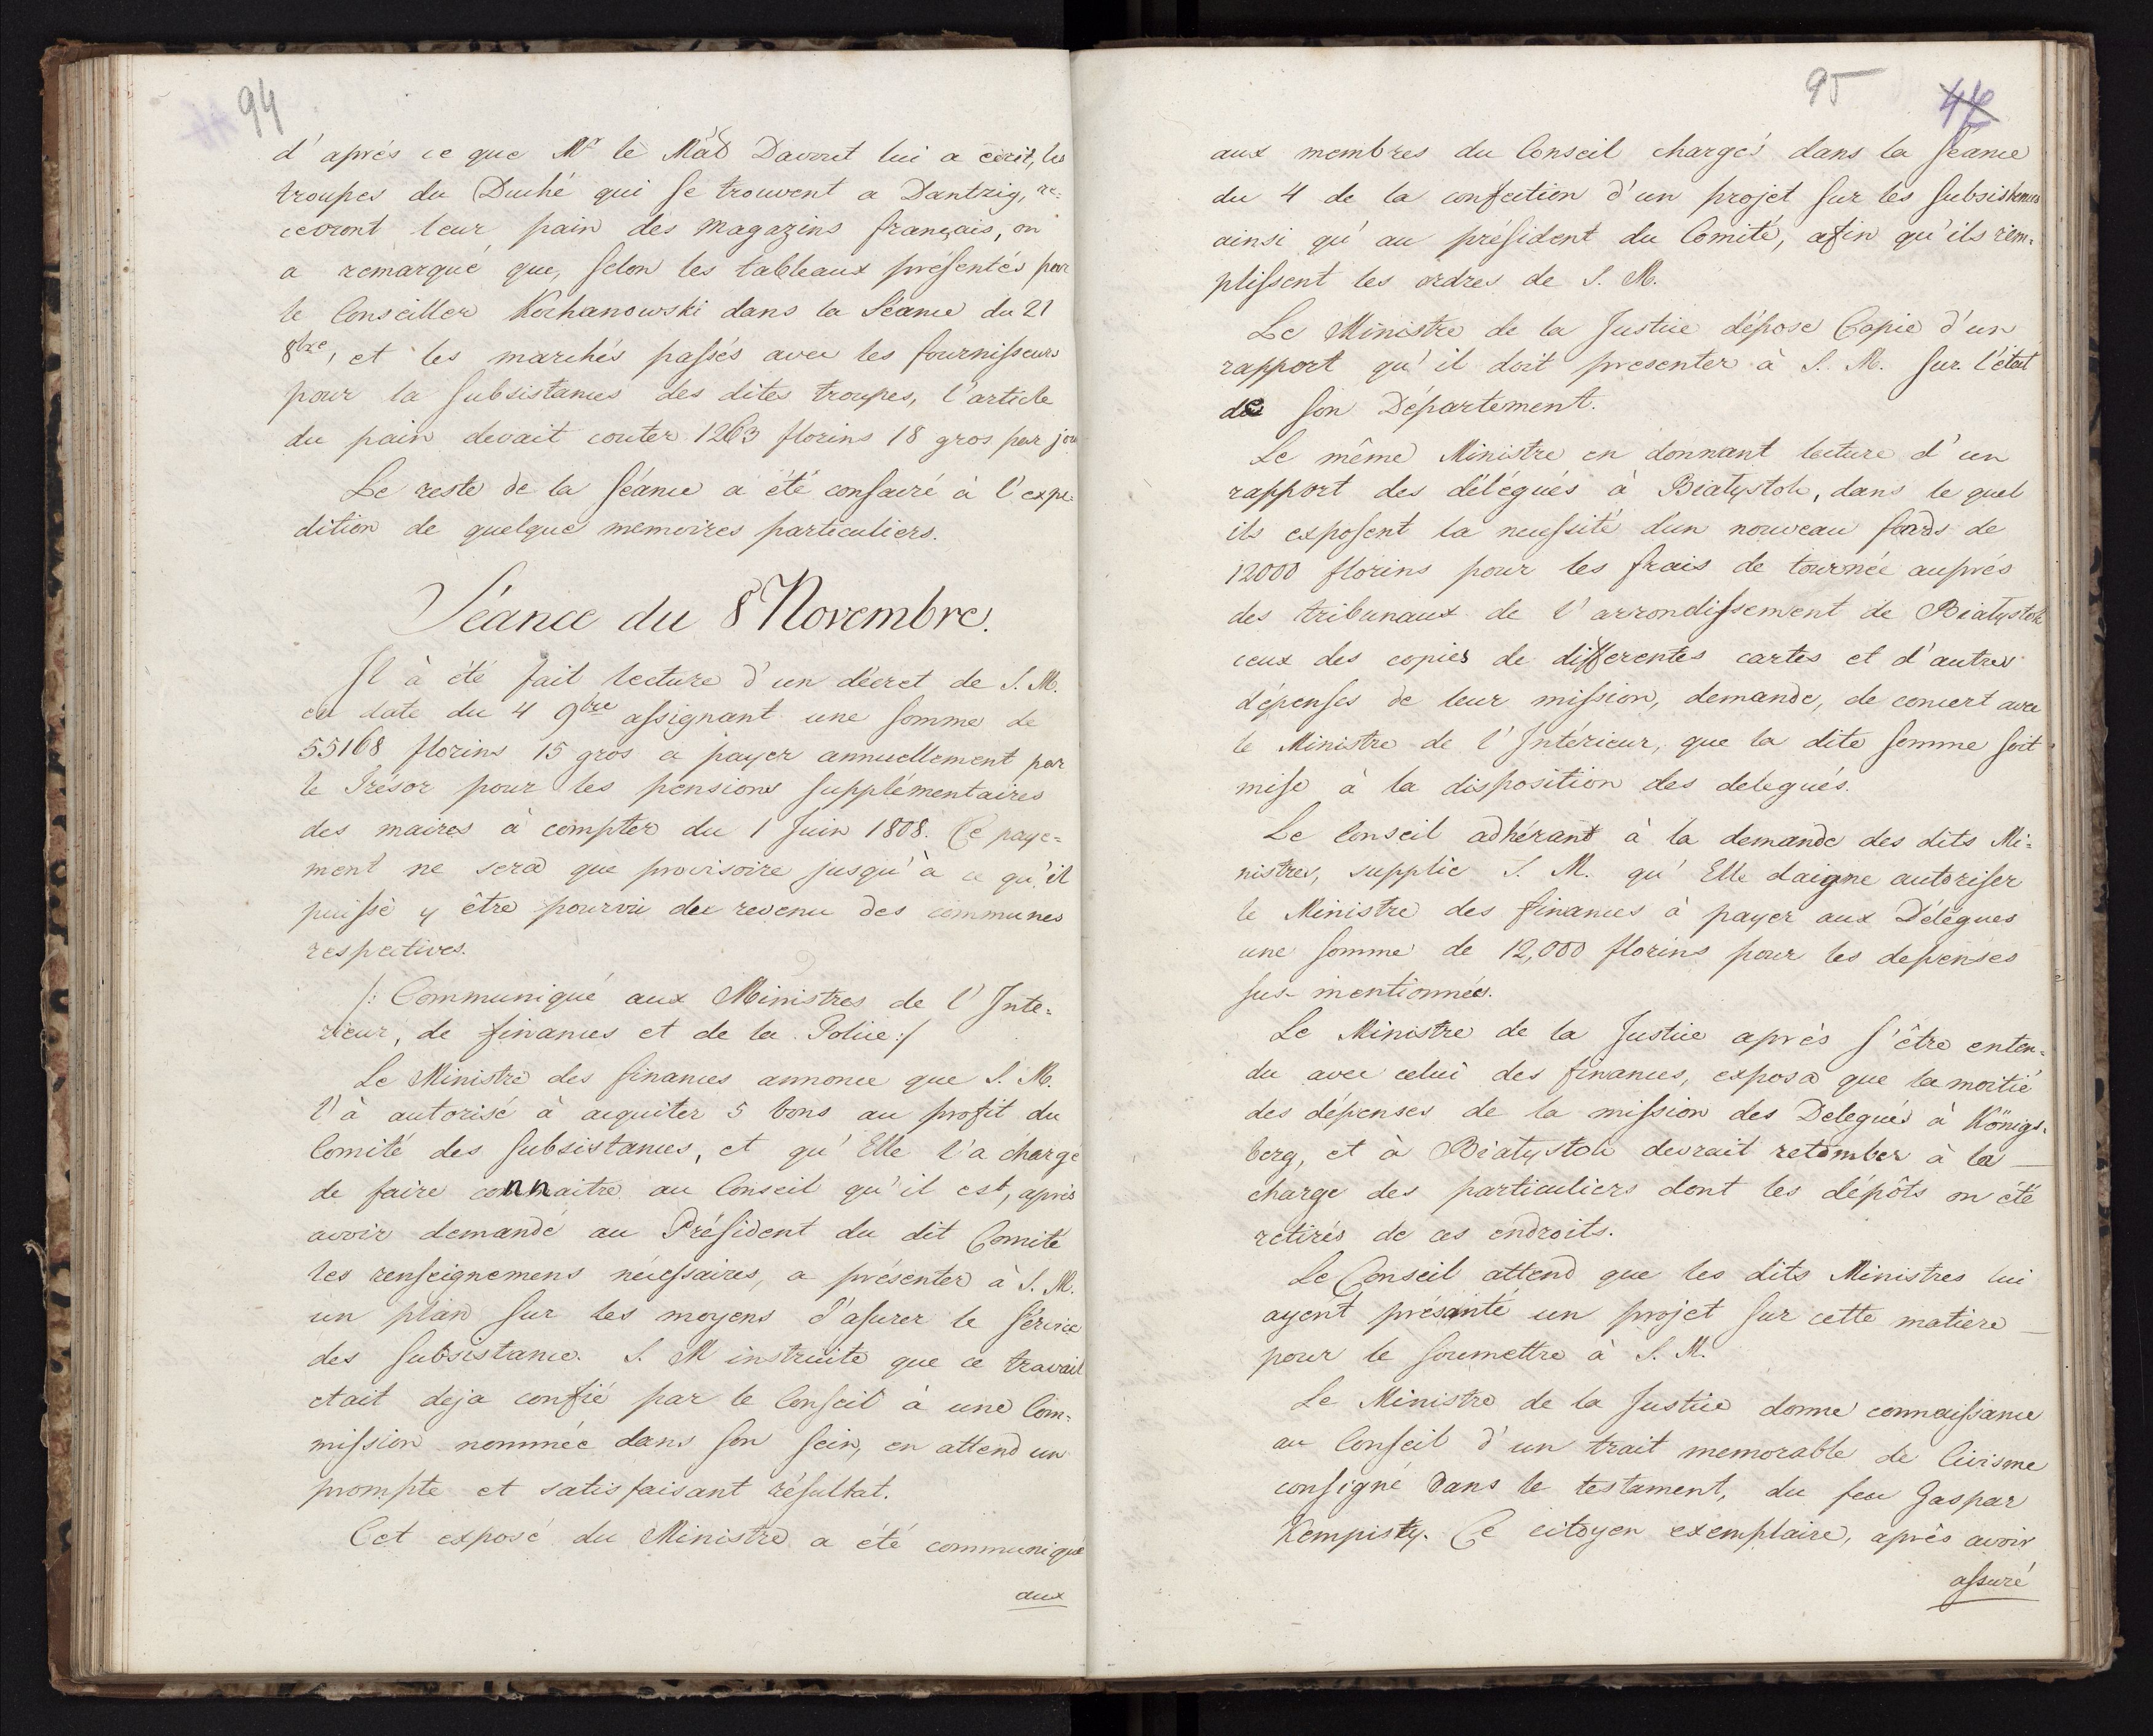 94
d'aprés ce que Mr le Mal Davout lui a écrit, les
troupes du Duché qui se trouvent a Dantzig, re=
cevront leur pain des magazins français, on
a remarqué que, selon les tableaux présentés par
le Conseiller Kochanowski dans la Séance du 21
8bre, et les marchés passés avec les fournisseurs
pour la subsistances des dites troupes, l'article
du pain devait couter 1263 florins 18 gros par jou
Le reste de la séance a été consacré à l'expe-
dition de quelque memoires particuliers.
Séance du 8 Novembre.
Il à été fait lecture d'un décret de S. M.
en date du 4 9bre assignant une somme de
55168 florins 15 gros a payer annuellement par
le Trésor pour les pensions supplémentaires
des maires à compter du 1 Juin 1808. Ce paye=
ment ne sera que provisoire jusqu'à ce qu'il
puisse y être pourvu du revenu des communes
respectives.
/: Communiqué aux Ministres de l'Inte=
rieur, de finances et de la Police :/
Le Ministre des finances annonce que S. M.
l'à autorisé à acquiter 5 bons au profit du
Comité des subsistances, et qu'Elle l'a chargé
de faire connaitre au Conseil qu'il est, aprés
avoir demandé au Président du dit Comité
les renseignemens nécessaires, a présenter à S. M.
un plan sur les moyens d'asurer le sérvice
des subsistance. S. M instruite que ce travail
etait deja confié par le Conseil à une Com=
mission nommée dans son sein, en attend un
prompte et satisfaisant résultat.
Cet exposé du Ministre a été communiqué
aux
95
47
aux membres du Conseil chargés dans la séance
du 4 de la confection d'un projet sur les subsistences
ainsi qu'au président du Comité, afin qu'ils rem=
plissent les ordres de S. M.
Le Ministre de la Justice dépose Copie d'un
rapport qu'il doit presenter à S. M. sur l'état
de son Département.
Le même Ministre en donnant lecture d'un
rapport des délégués à Białystok, dans le quel
ils exposent la necessité d'un nouveau fonds de
12000 florins pour les frais de tournée auprés
des tribunaux de l'arrondissement de Białystok
ceux des copies de differentes cartes et d'autres
dépenses de leur mission, demande, de concert avec
le Ministre de l'Intérieur, que la dite somme soit
mise à la disposition des delegués.
Le Conseil adhérant à la demande des dits Mi=
nistres, supplie S. M. qu'Elle daigne autoriser
le Ministre des finances à payer aux Délégues
une somme de 12,000 florins pour les depenses
sus-mentionnées.
Le Ministre de la Justice après s'être enten=
du avec celui des finances, exposa que la moitié
des dépenses de la mission des Delegués à Königs=
berg, et à Białystok devrait retomber à la
charge des particuliers dont les dépôts on été
retirés de ces endroits.
Le Conseil attend que les dits Ministres lui
ayent présanté un projet sur cette matiere
pour le soumettre à S. M.
Le Ministre de la Justice donne connaissance
au Conseil d'un trait memorable de Civisme
consigné dans le testament, du feu Gaspar
Kempisty. Ce citoyen exemplaire, après avoir
assuré